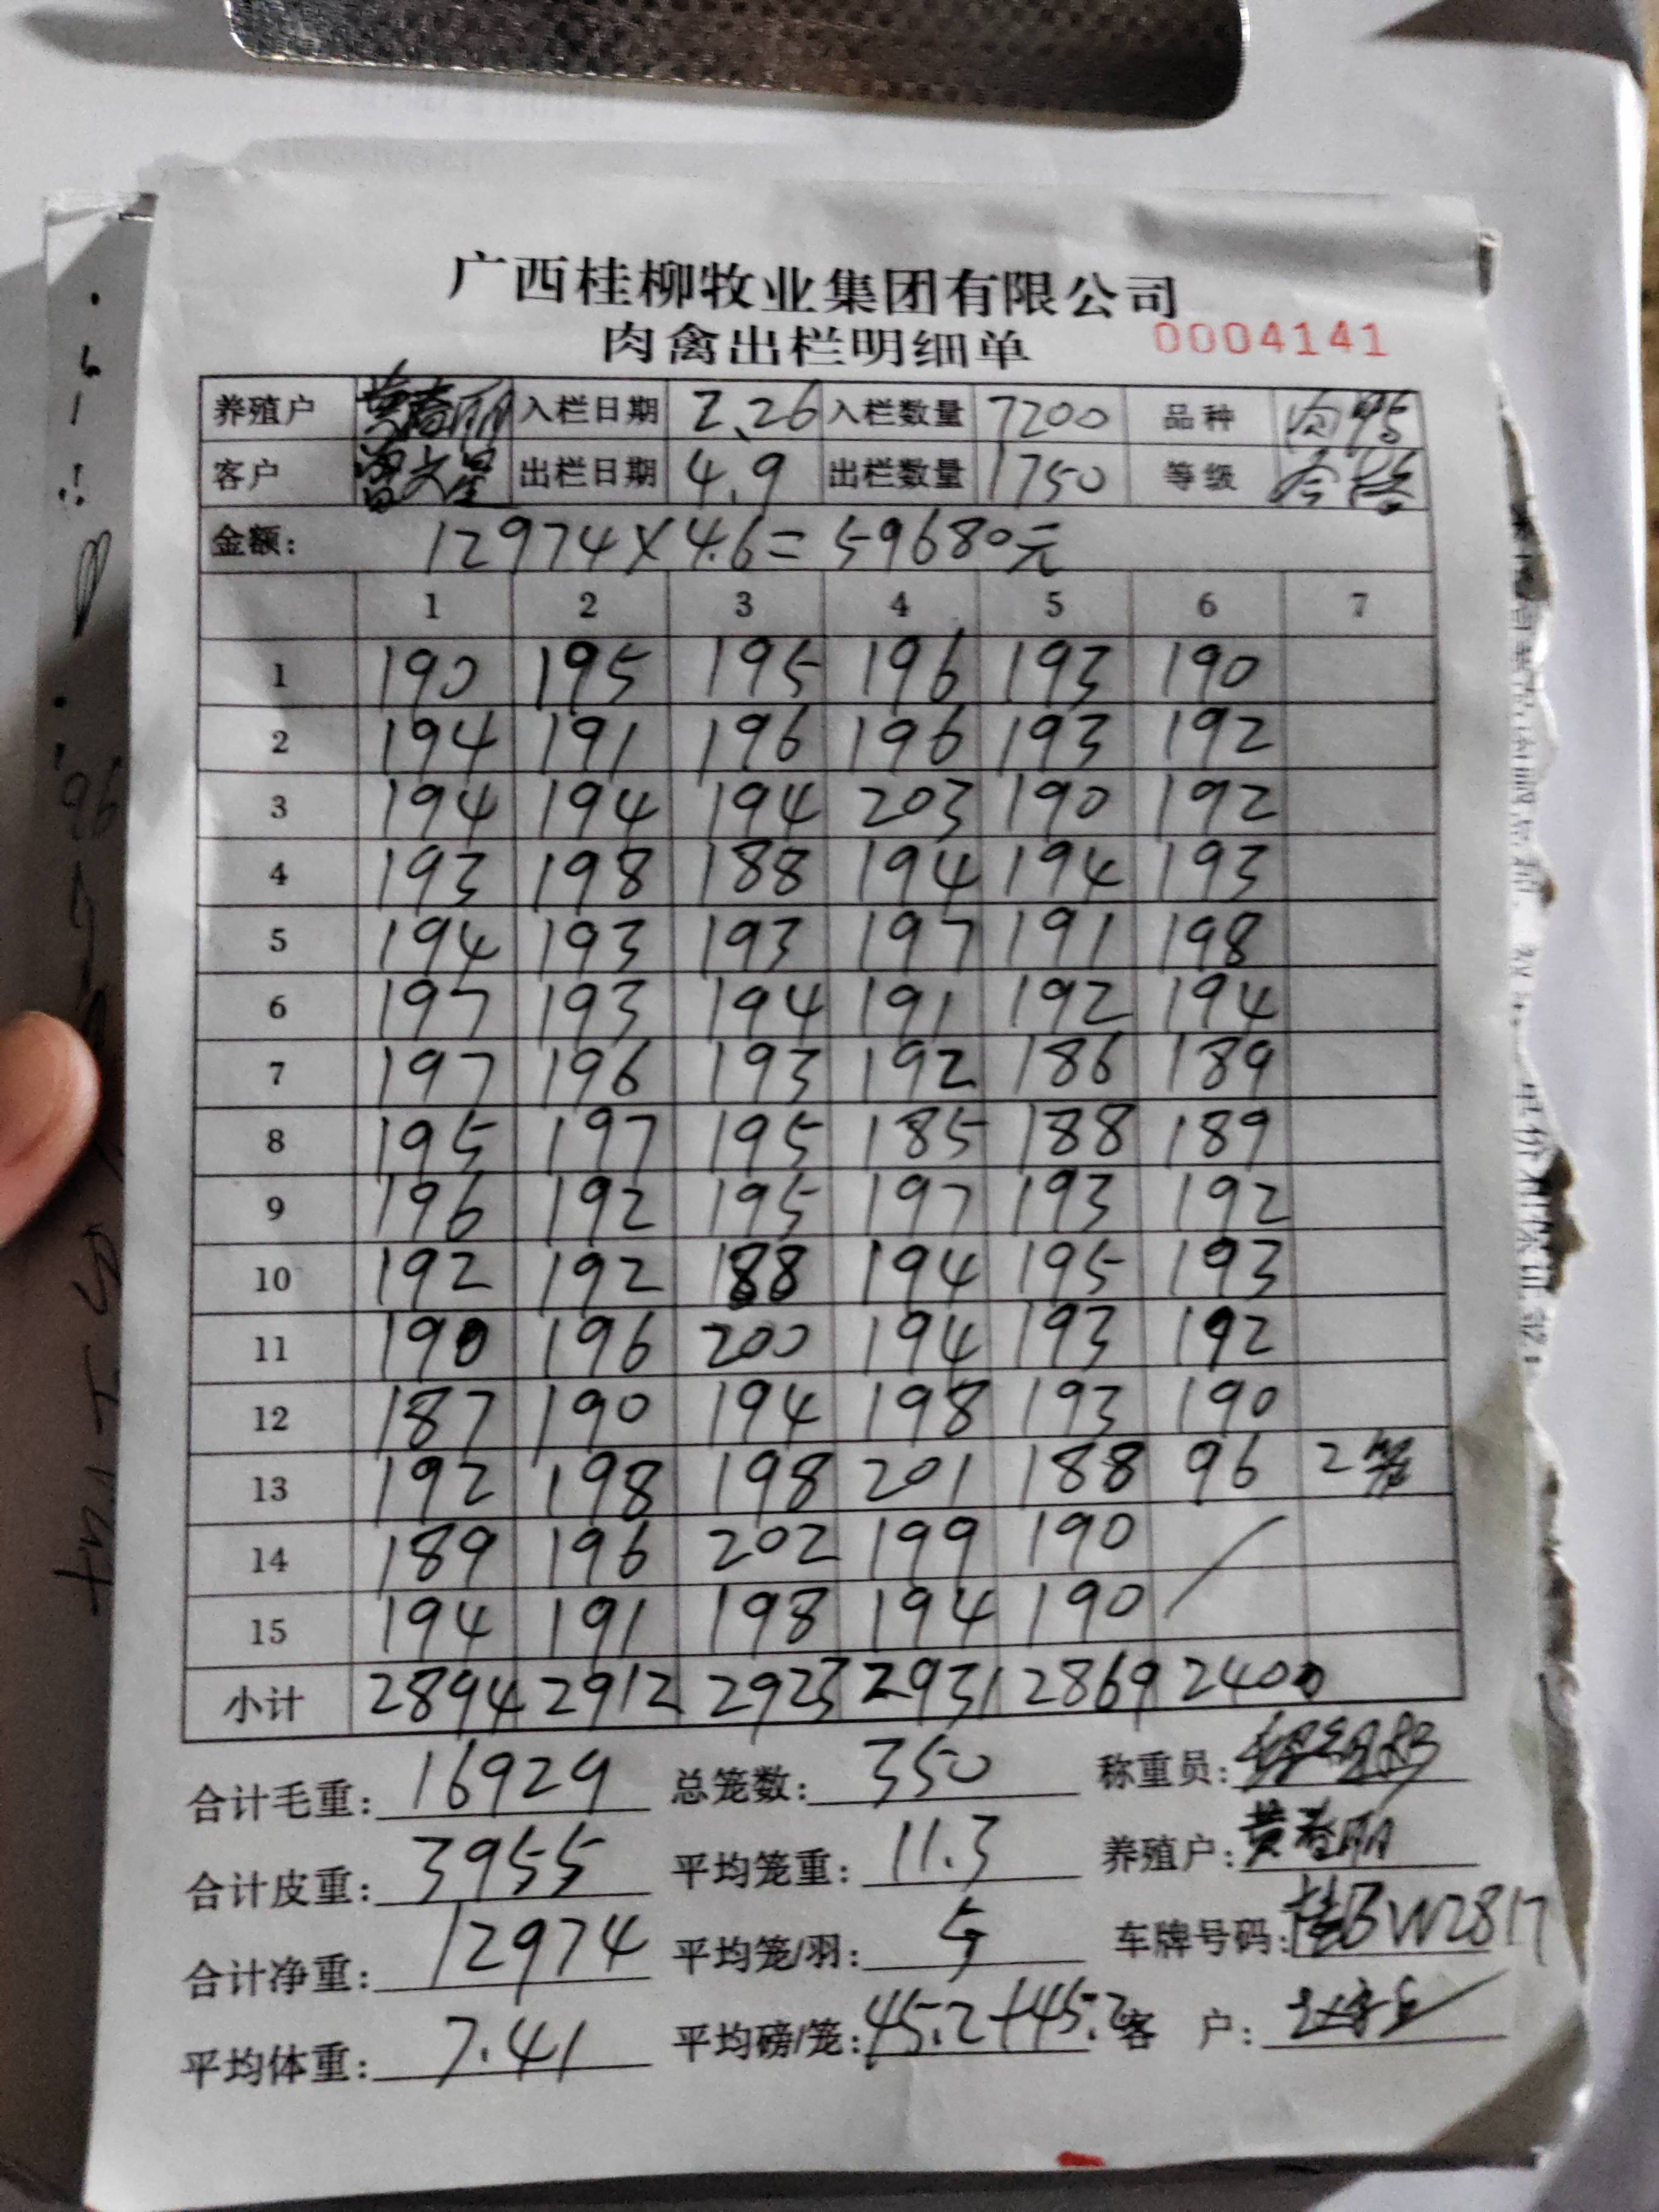 广西桂柳牧业集团有限公司
肉禽出栏明细单 0004141
养殖户 黄春丽 入栏日期 2.26 入栏数量 7200 品种 肉鸭
客户 出栏日期 4.9 出栏数量 1750 等级 合格
金额: 12974×4.6=59680元
1 2 3 4 5 6 7
1 190 195 195 196 193 190
2 194 191 196 196 193 192
3 194 194 194 203 190 192
4 193 198 188 194 194 193
5 194 193 193 197 191 198
6 197 193 194 191 192 194
7 197 196 193 192 186 189
8 195 197 195 185 188 189
9 196 192 195 197 193 192
10 192 192 188 194 195 193
11 190 196 200 194 193 192
12 187 190 194 198 193 190
13 192 198 198 201 188 96 2笼
14 189 196 202 199 190
15 194 191 198 194 190
小计 2894 2912 2923 2931 2869 2400
合计毛重: 16929 总笼数: 350 称重员:
合计皮重: 3955 平均笼重: 11.3 养殖户: 黄春丽
合计净重: 12974 平均笼/羽: 5 车牌号码: 桂BW2817
平均体重: 7.41 平均磅/笼: 45.2+45.2 客 户: